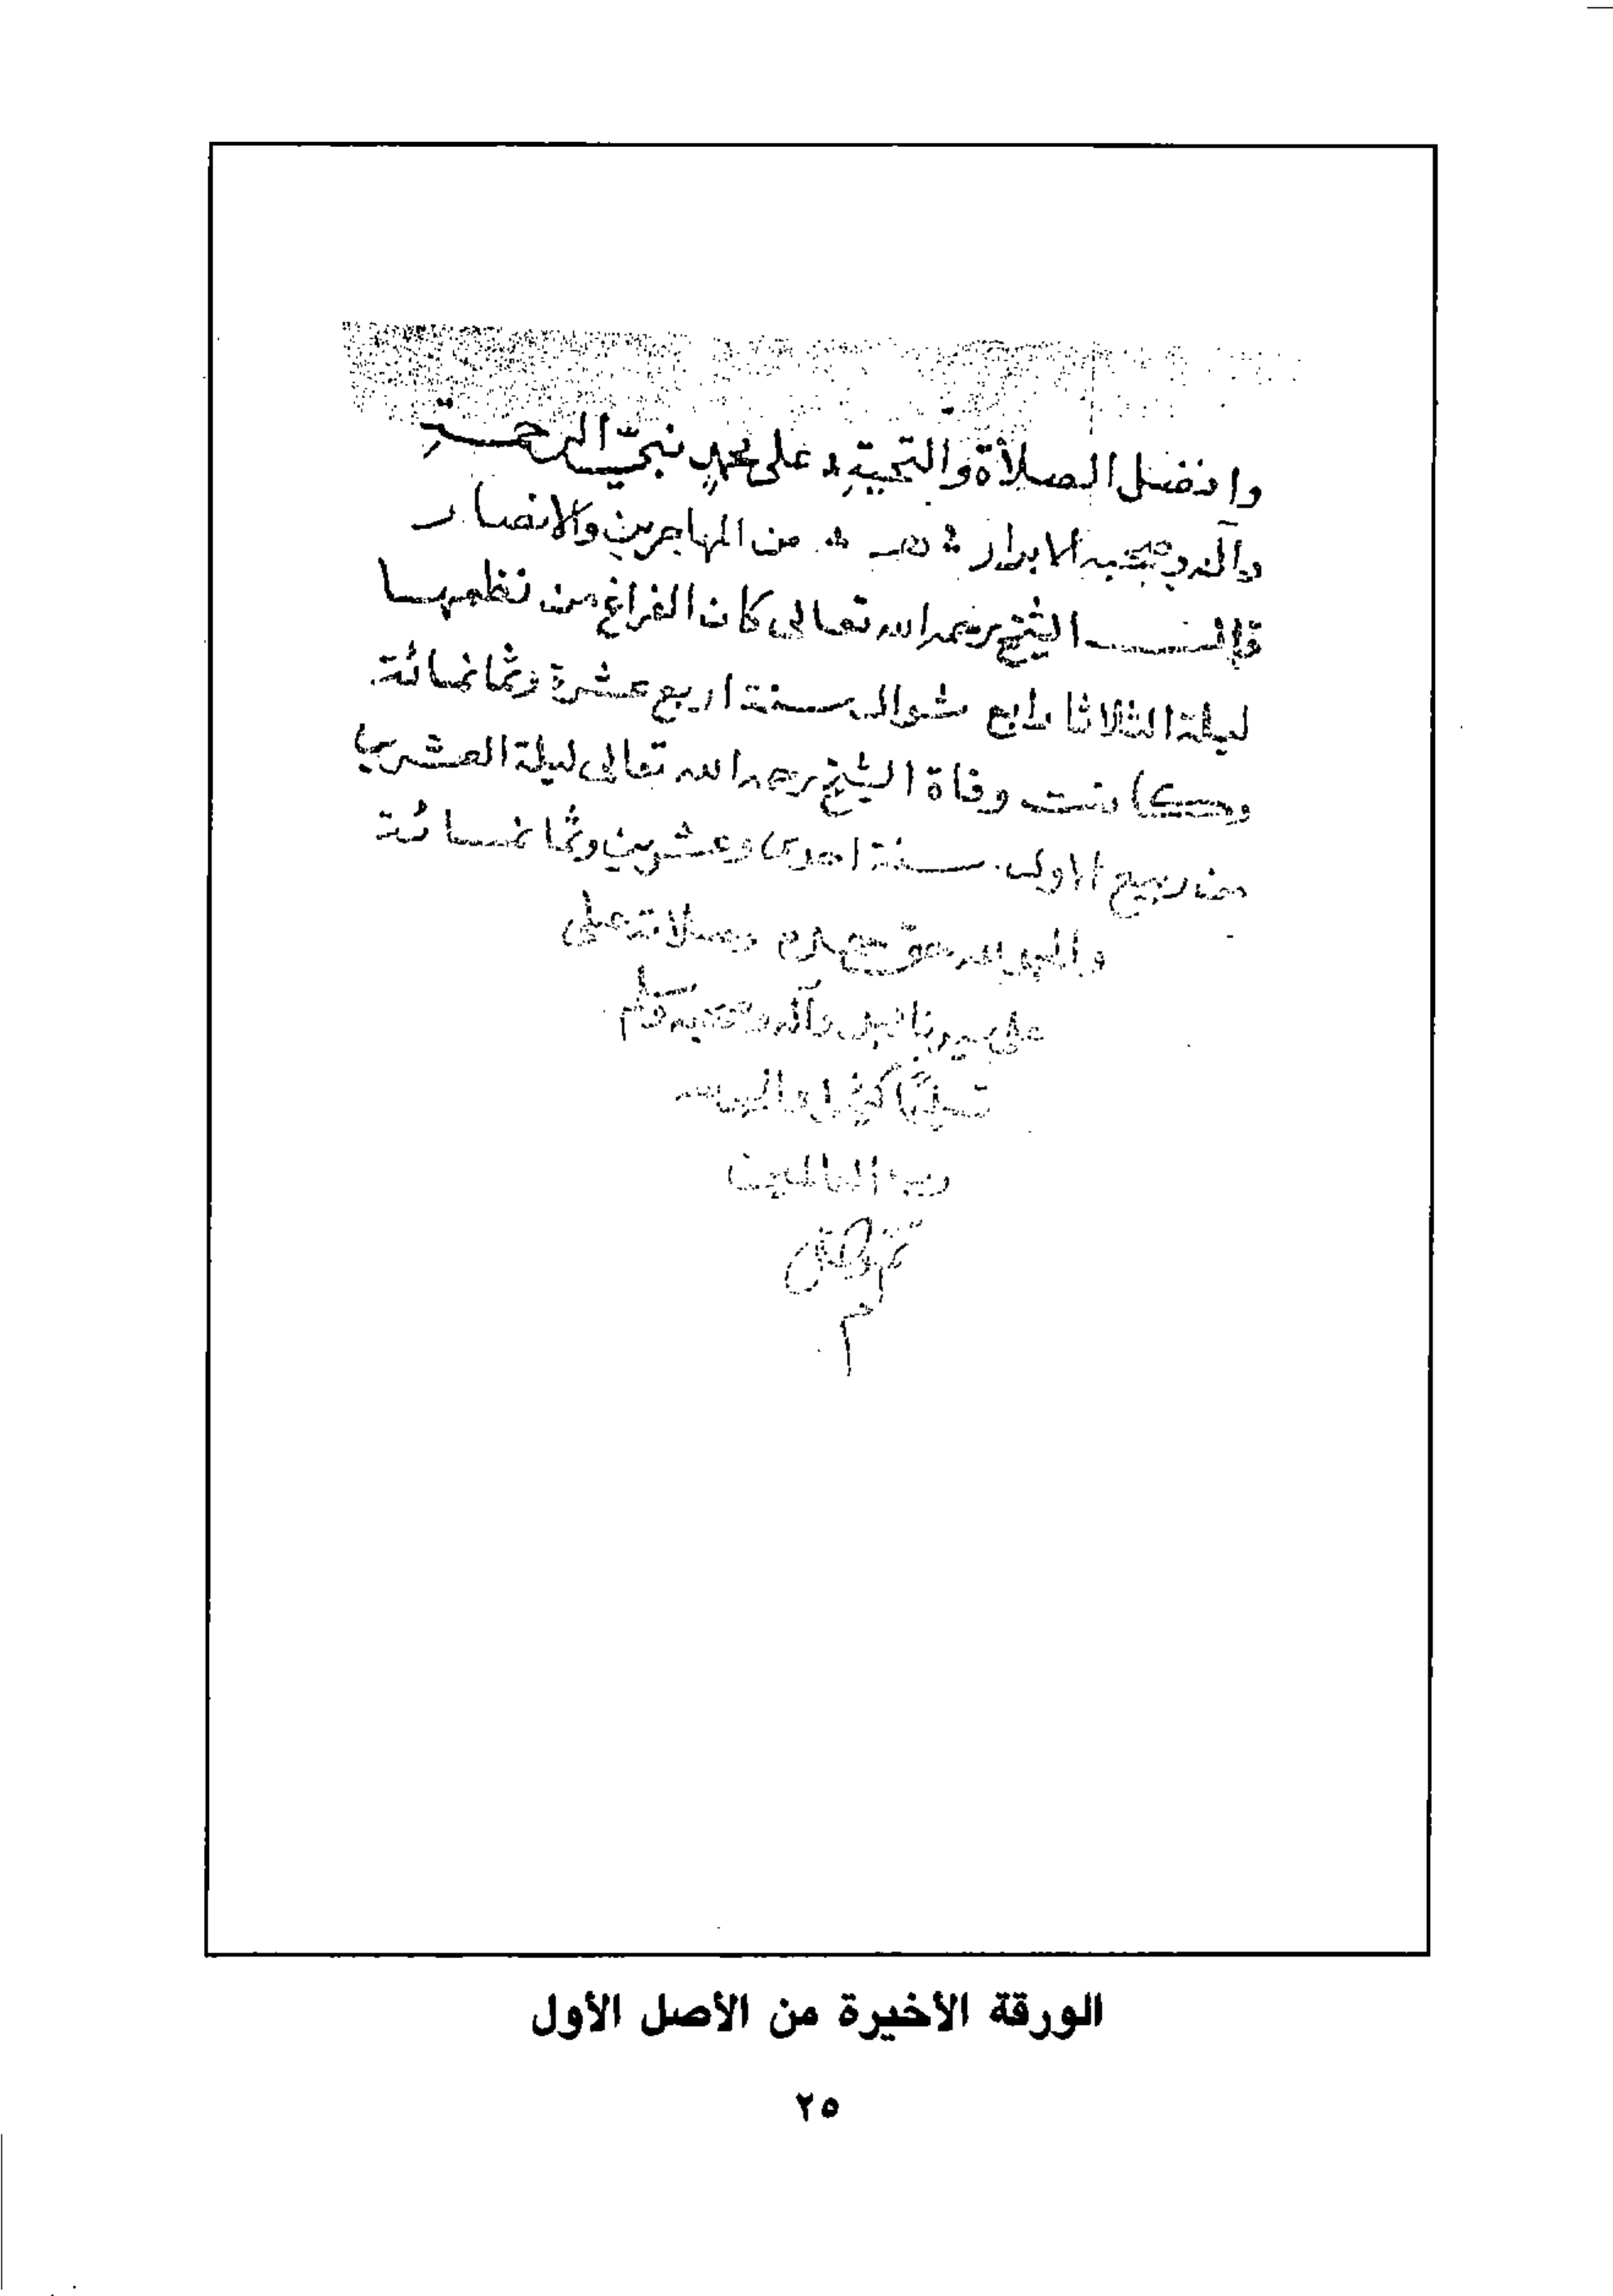 وافضل الصلاة والتحية على محمد نبي الرحمة
وآله وصحبه الابرار من المهاجرين والانصار
قال الشيخ رحمه الله تعالى كان الفراغ من نظمها
ليلة الثلاثا رابع شوال سنة اربع عشرة وثمانمائة
وكانت وفاة الشيخ رحمه الله تعالى ليلة العشرين
من ربيع الاول سنة احدى وعشرين وثمانمائة
والحمد لله حق حمده وصلاته على
على سيدنا محمد وآله وصحبه وسلم
تسليما كثيرا والحمد لله
رب العالمين
م
الورقة الأخيرة من الأصل الأول
٢٥